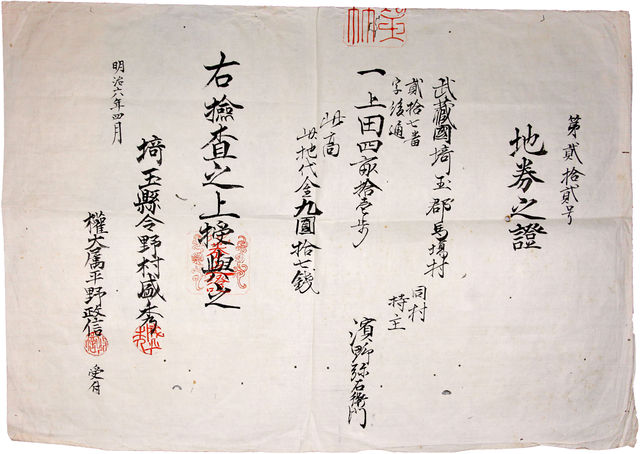 第貳拾貳号
地券之證
武蔵國埼玉郡馬場村
貳拾七番
字後通
同村
持主
濱野弥右衛門
一上田四畝拾壱歩
此高
此地代金九圓拾七銭
右撿査之上授與之
明治六年四月
埼玉縣令野村盛秀
權大属平野政信
受付